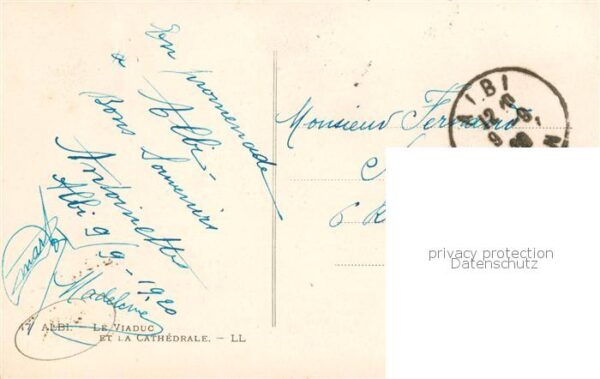 En promenade
à Albi -
Bons Souvenirs
Antoinette
Albi 9/9-1920
Madeleine
Monsieur Fernand
6 R
ALBI
12
9
privacy protection
Datenschutz
ALBI. - LE VIADUC
ET LA CATHÉDRALE. - LL